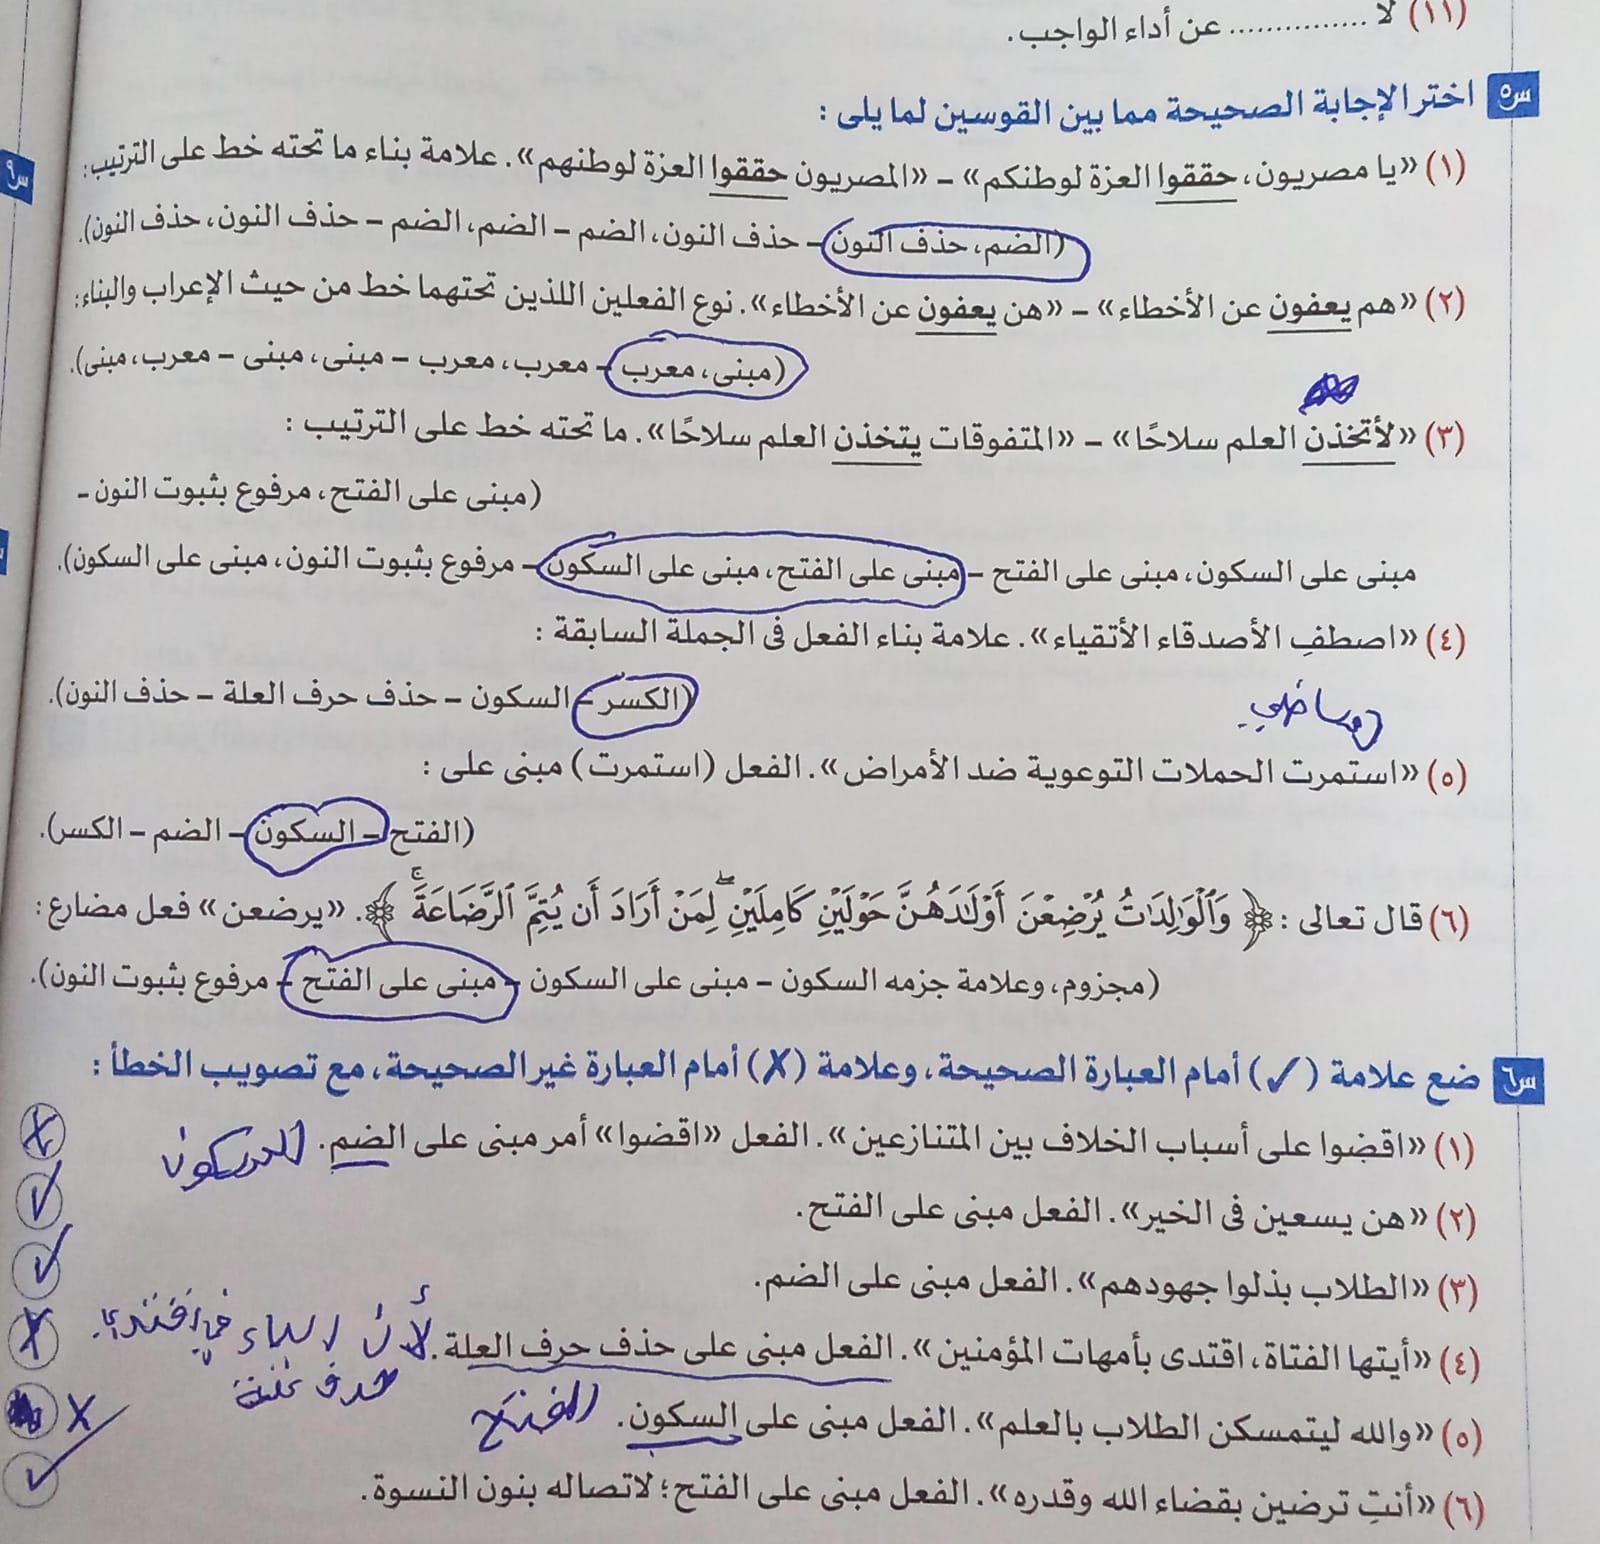 (١١) لا ............... عن أداء الواجب.
س٥ اختر الإجابة الصحيحة مما بين القوسين لما يلى :
(١) «يا مصريون، حققوا العزة لوطنكم» – «المصريون حققوا العزة لوطنهم». علامة بناء ما تحته خط على الترتيب:
(الضم، حذف النون – حذف النون، الضم – الضم، الضم – حذف النون، حذف النون).
(٢) «هم يعفون عن الأخطاء» – «هن يعفون عن الأخطاء». نوع الفعلين اللذين تحتهما خط من حيث الإعراب والبناء:
(مبنى، معرب – معرب، معرب – مبنى، مبنى – معرب، مبنى).
(٣) «لأتخذن العلم سلاحًا» – «المتفوقات يتخذن العلم سلاحًا». ما تحته خط على الترتيب :
(مبنى على الفتح، مرفوع بثبوت النون –
مبنى على السكون، مبنى على الفتح – مبنى على الفتح، مبنى على السكون – مرفوع بثبوت النون، مبنى على السكون).
(٤) «اصطفِ الأصدقاء الأتقياء». علامة بناء الفعل فى الجملة السابقة :
(الكسر – السكون – حذف حرف العلة – حذف النون).
(٥) «استمرت الحملات التوعوية ضد الأمراض». الفعل (استمرت) مبنى على :
(الفتح – السكون – الضم – الكسر).
(٦) قال تعالى : ﴿ وَٱلْوَٰلِدَٰتُ يُرْضِعْنَ أَوْلَٰدَهُنَّ حَوْلَيْنِ كَامِلَيْنِ ۖ لِمَنْ أَرَادَ أَن يُتِمَّ ٱلرَّضَاعَةَ ۚ ﴾. «يرضعن» فعل مضارع :
(مجزوم، وعلامة جزمه السكون – مبنى على السكون – مبنى على الفتح – مرفوع بثبوت النون).
س٦ ضع علامة (✓) أمام العبارة الصحيحة، وعلامة (✗) أمام العبارة غير الصحيحة، مع تصويب الخطأ :
(١) «اقضوا على أسباب الخلاف بين المتنازعين». الفعل «اقضوا» أمر مبنى على الضم.
(٢) «هن يسعين فى الخير». الفعل مبنى على الفتح.
(٣) «الطلاب بذلوا جهودهم». الفعل مبنى على الضم.
(٤) «أيتها الفتاة، اقتدى بأمهات المؤمنين». الفعل مبنى على حذف حرف العلة. لأن الياء في اقتدي
حرف علة
(٥) «والله ليتمسكن الطلاب بالعلم». الفعل مبنى على السكون. الفتح X
(٦) «أنتِ ترضين بقضاء الله وقدره». الفعل مبنى على الفتح؛ لاتصاله بنون النسوة.
س٩